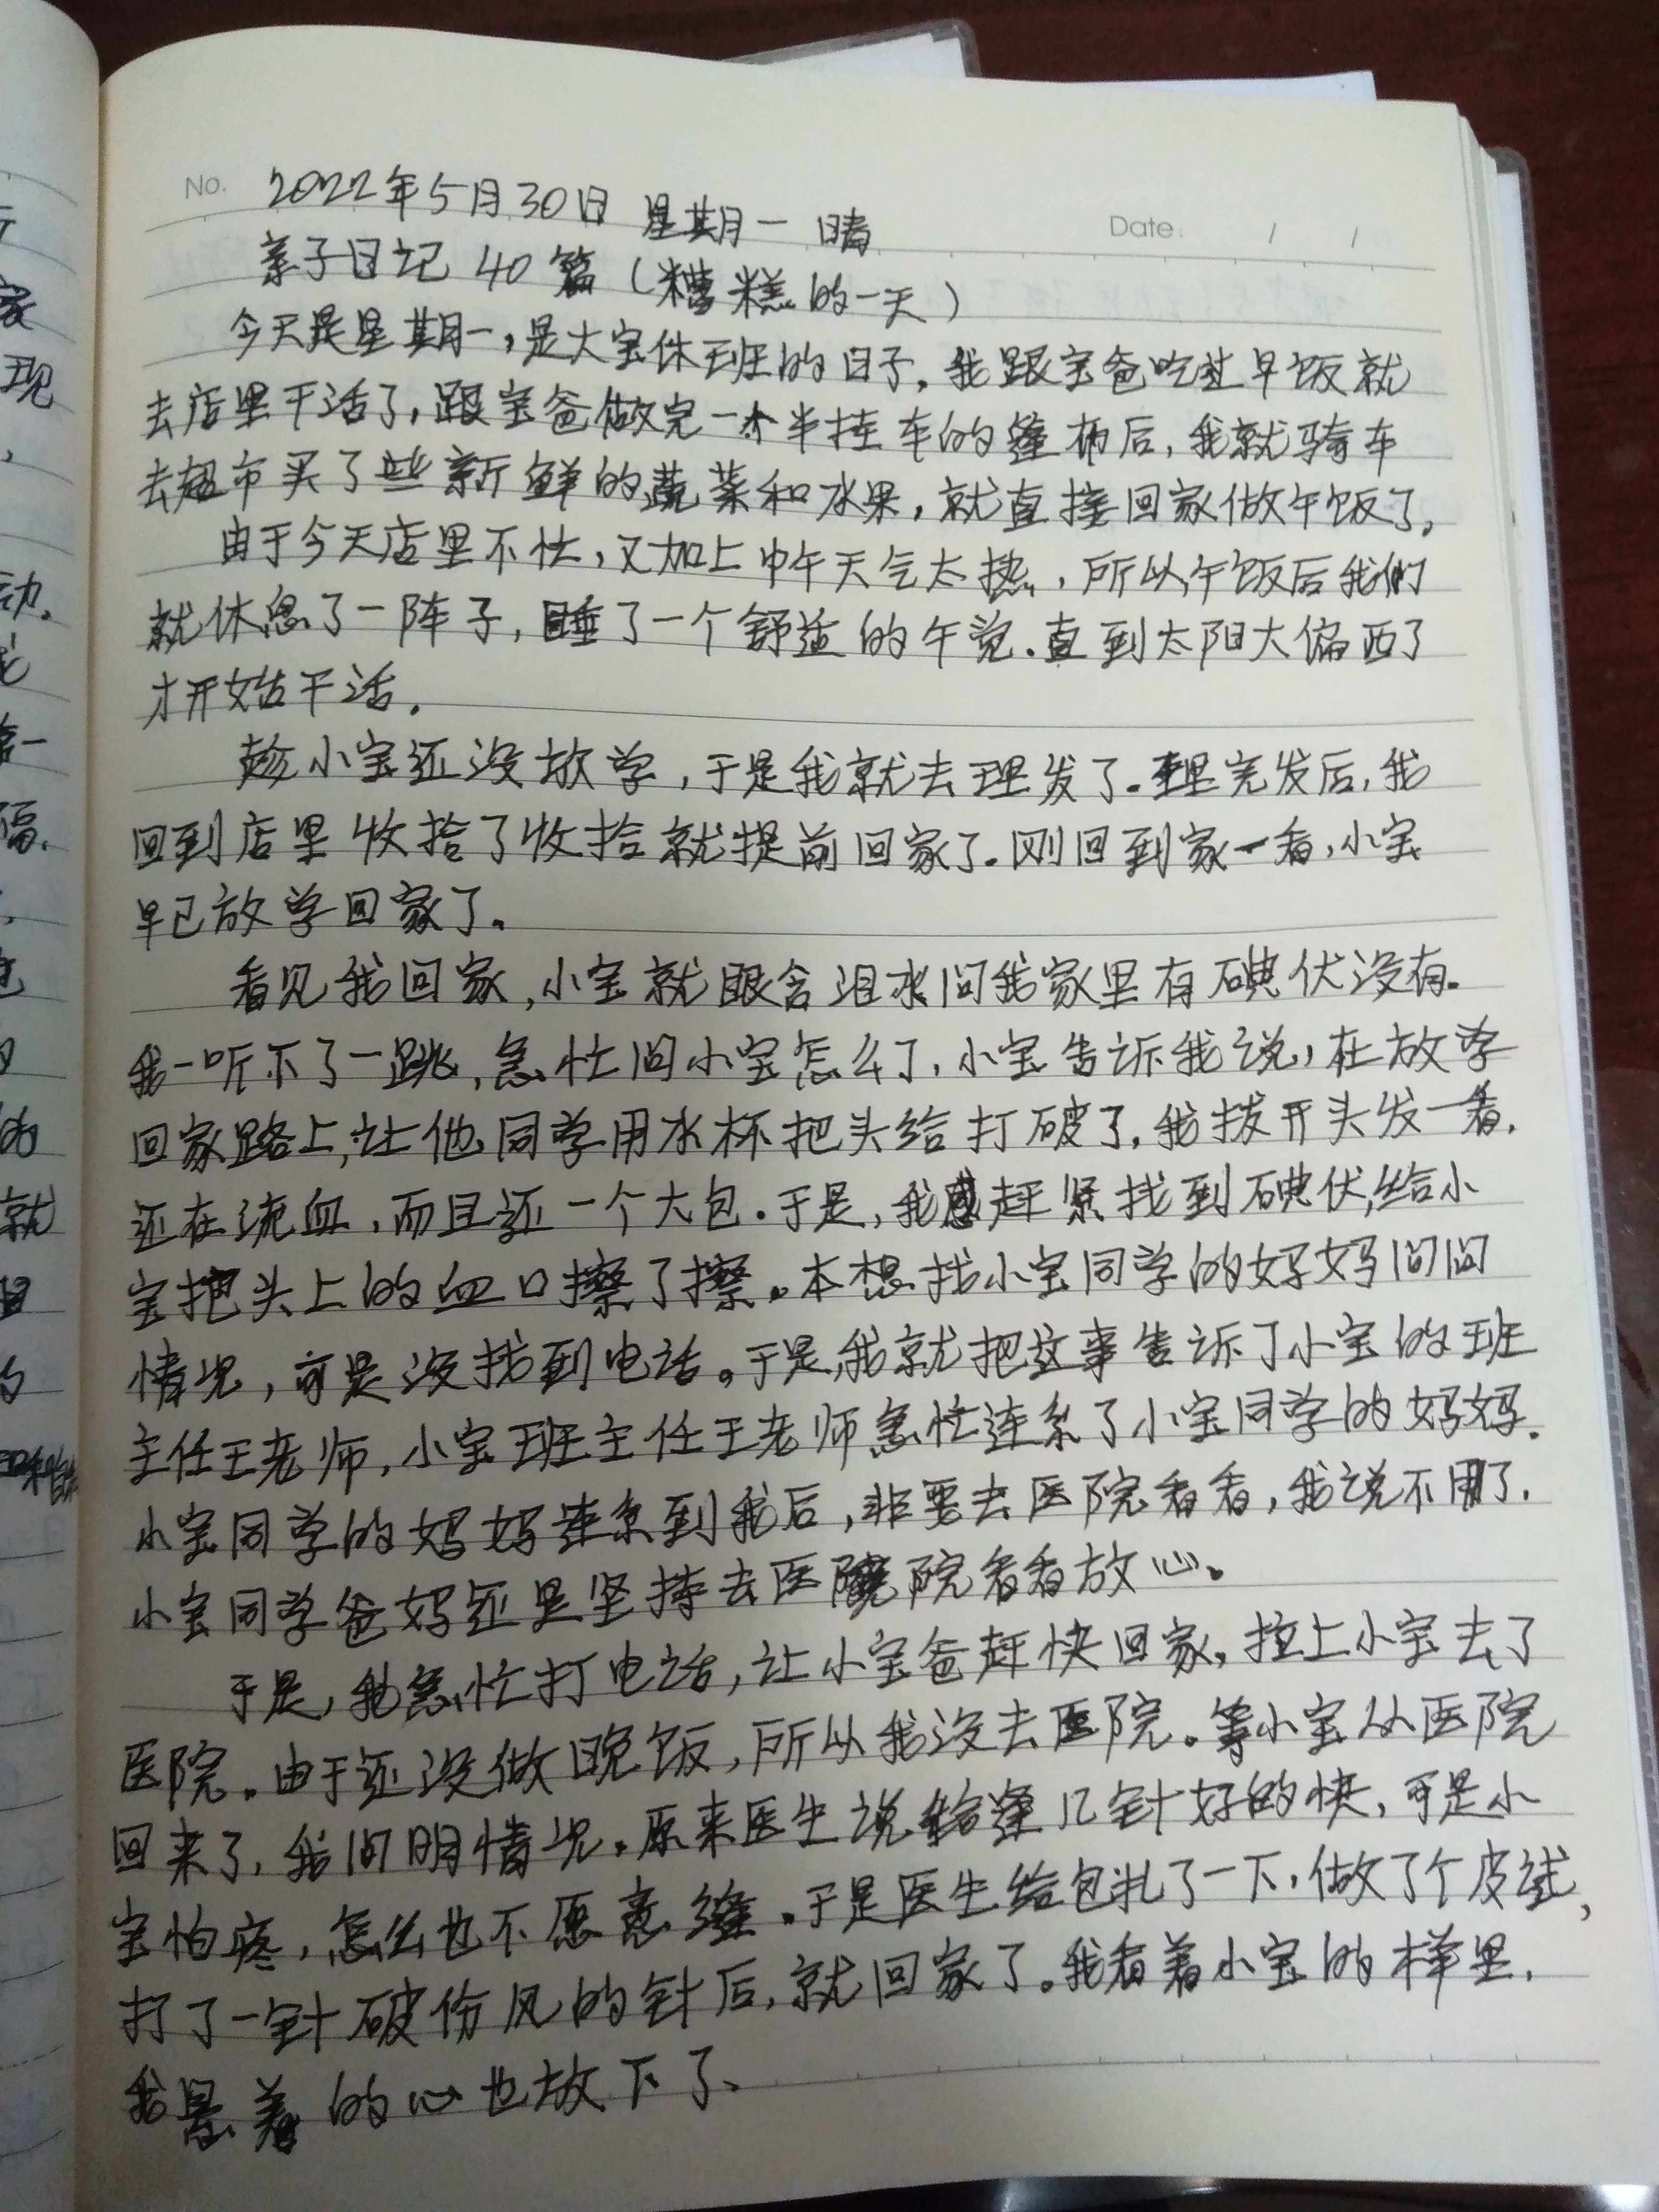 No.
2022年5月30日 星期一 晴
Date. / /
亲子日记 40篇（糟糕的一天）
今天是星期一，是大宝休班的日子，我跟宝爸吃过早饭就
去店里干活了，跟宝爸做完一个半挂车的篷布后，我就骑车
去超市买了些新鲜的蔬菜和水果，就直接回家做午饭了。
由于今天店里不忙，又加上中午天气太热，所以午饭后我们
就休息了一阵子，睡了一个舒适的午觉.直到太阳大偏西了
才开始干活.
趁小宝还没放学，于是我就去理发了.理完发后，我
回到店里收拾了收拾就提前回家了.刚回到家一看，小宝
早已放学回家了。
看见我回家，小宝就眼含泪水问我家里有碘伏没有.
我一听下了一跳，急忙问小宝怎么了，小宝告诉我说，在放学
回家路上，让他同学用水杯把头给打破了，我拔开头发一看.
还在流血，而且还一个大包.于是，我赶紧找到碘伏，给小
宝把头上的血口擦了擦。本想找小宝同学的妈妈问问
情况，可是没找到电话。于是，我就把这事告诉了小宝的班
主任王老师，小宝班主任王老师急忙连系了小宝同学的妈妈.
小宝同学的妈妈连系到我后，非要去医院看看，我说不用了.
小宝同学爸妈还是坚持去医院看看放心。
于是，我急忙打电话，让小宝爸赶快回家，拉上小宝去了
医院。由于还没做晚饭，所以我没去医院。等小宝从医院
回来了，我问明情况。原来医生说给缝几针好的快，可是小
宝怕疼，怎么也不愿意缝.于是医生给包扎了一下，做了个皮试，
打了一针破伤风的针后，就回家了。我看着小宝的样里，
我悬着的心也放下了、